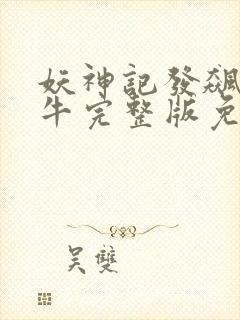 妖神記發飆
牛完整版免
吴雙